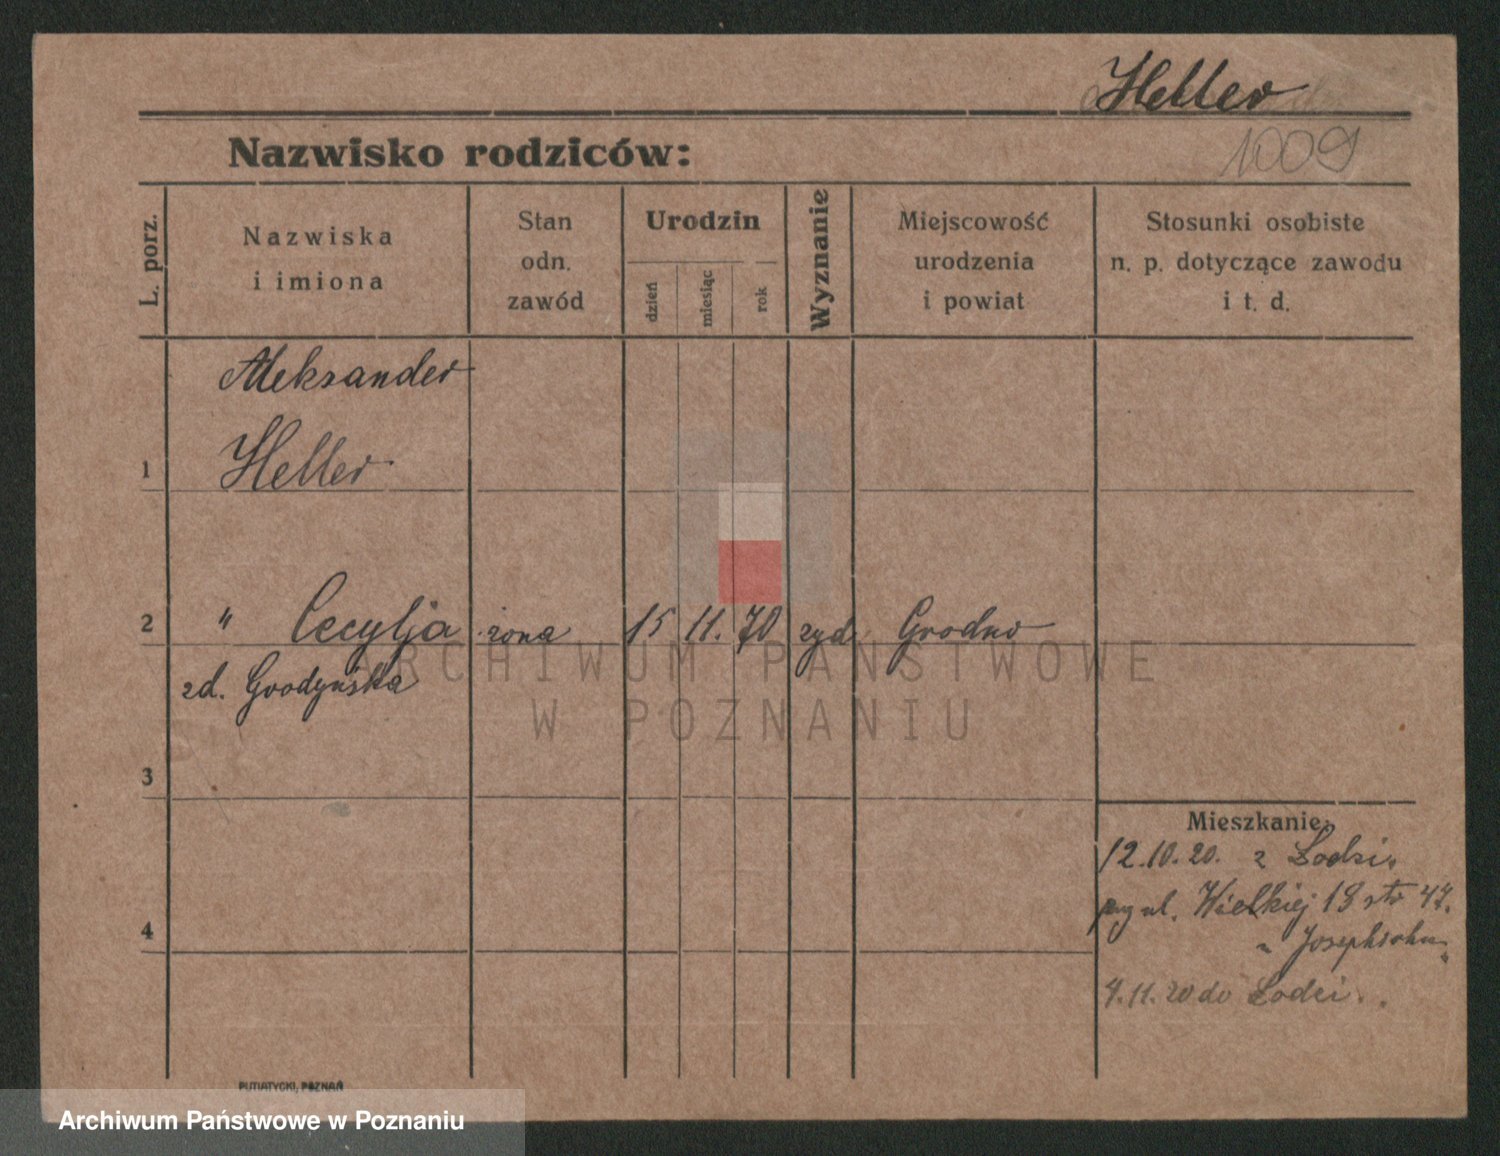 Heller
1009
Nazwisko rodziców:
L. porz.
Nazwiska
i imiona
Stan
odn.
zawód
Urodzin
dzień
miesiąc
rok
Wyznanie
Miejscowość
urodzenia
i powiat
Stosunki osobiste
n. p. dotyczące zawodu
i t. d.
Aleksander
1 Heller
2 " Cecylja żona 15 11. 70 żyd Grodno
zd. Grodyńska
ARCHIWUM PAŃSTWOWE
W POZNANIU
3
Mieszkanie:
12.10.20. z Łodzi.
ul. Wielkiej 18 47.
4
4.11.20 do Łodzi.
PUTIATYCKI, POZNAŃ
Archiwum Państwowe w Poznaniu